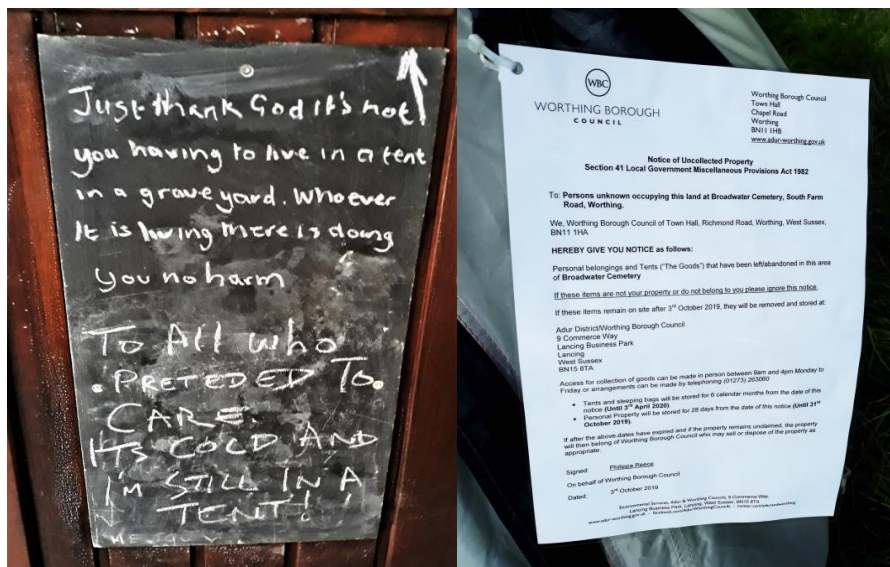 Just thank God it's not
you having to live in a tent
in a graveyard. Whoever
It is living there is doing
you no harm
To All who
. PRETEDED To.
CARE.
ITS COLD AND
I'M STILL IN A
TENT!!
WBC
WORTHING BOROUGH
COUNCIL
Worthing Borough Council
Town Hall
Chapel Road
Worthing
BN11 1HB
www.adur-worthing.gov.uk
Notice of Uncollected Property
Section 41 Local Government Miscellaneous Provisions Act 1982
To: Persons unknown occupying this land at Broadwater Cemetery, South Farm
Road, Worthing.
We, Worthing Borough Council of Town Hall, Richmond Road, Worthing, West Sussex,
BN11 1HA
HEREBY GIVE YOU NOTICE as follows:
Personal belongings and Tents ("The Goods") that have been left/abandoned in this area
of Broadwater Cemetery
If these items are not your property or do not belong to you please ignore this notice.
If these items remain on site after 3rd October 2019, they will be removed and stored at:
Adur District/Worthing Borough Council
9 Commerce Way
Lancing Business Park
Lancing
West Sussex
BN15 8TA
Access for collection of goods can be made in person between 9am and 4pm Monday to
Friday or arrangements can be made by telephoning (01273) 263060
• Tents and sleeping bags will be stored for 6 calendar months from the date of this
notice (Until 3rd April 2020)
• Personal Property will be stored for 28 days from the date of this notice (Until 31st
October 2019).
If after the above dates have expired and if the property remains unclaimed, the property
will then belong of Worthing Borough Council who may sell or dispose of the property as
appropriate.
Signed: Philippa Reece
On behalf of Worthing Borough Council
Dated: 3rd October 2019
Environmental Services, Adur & Worthing Councils, 9 Commerce Way,
Lancing Business Park, Lancing, West Sussex, BN15 8TA
www.adur-worthing.gov.uk